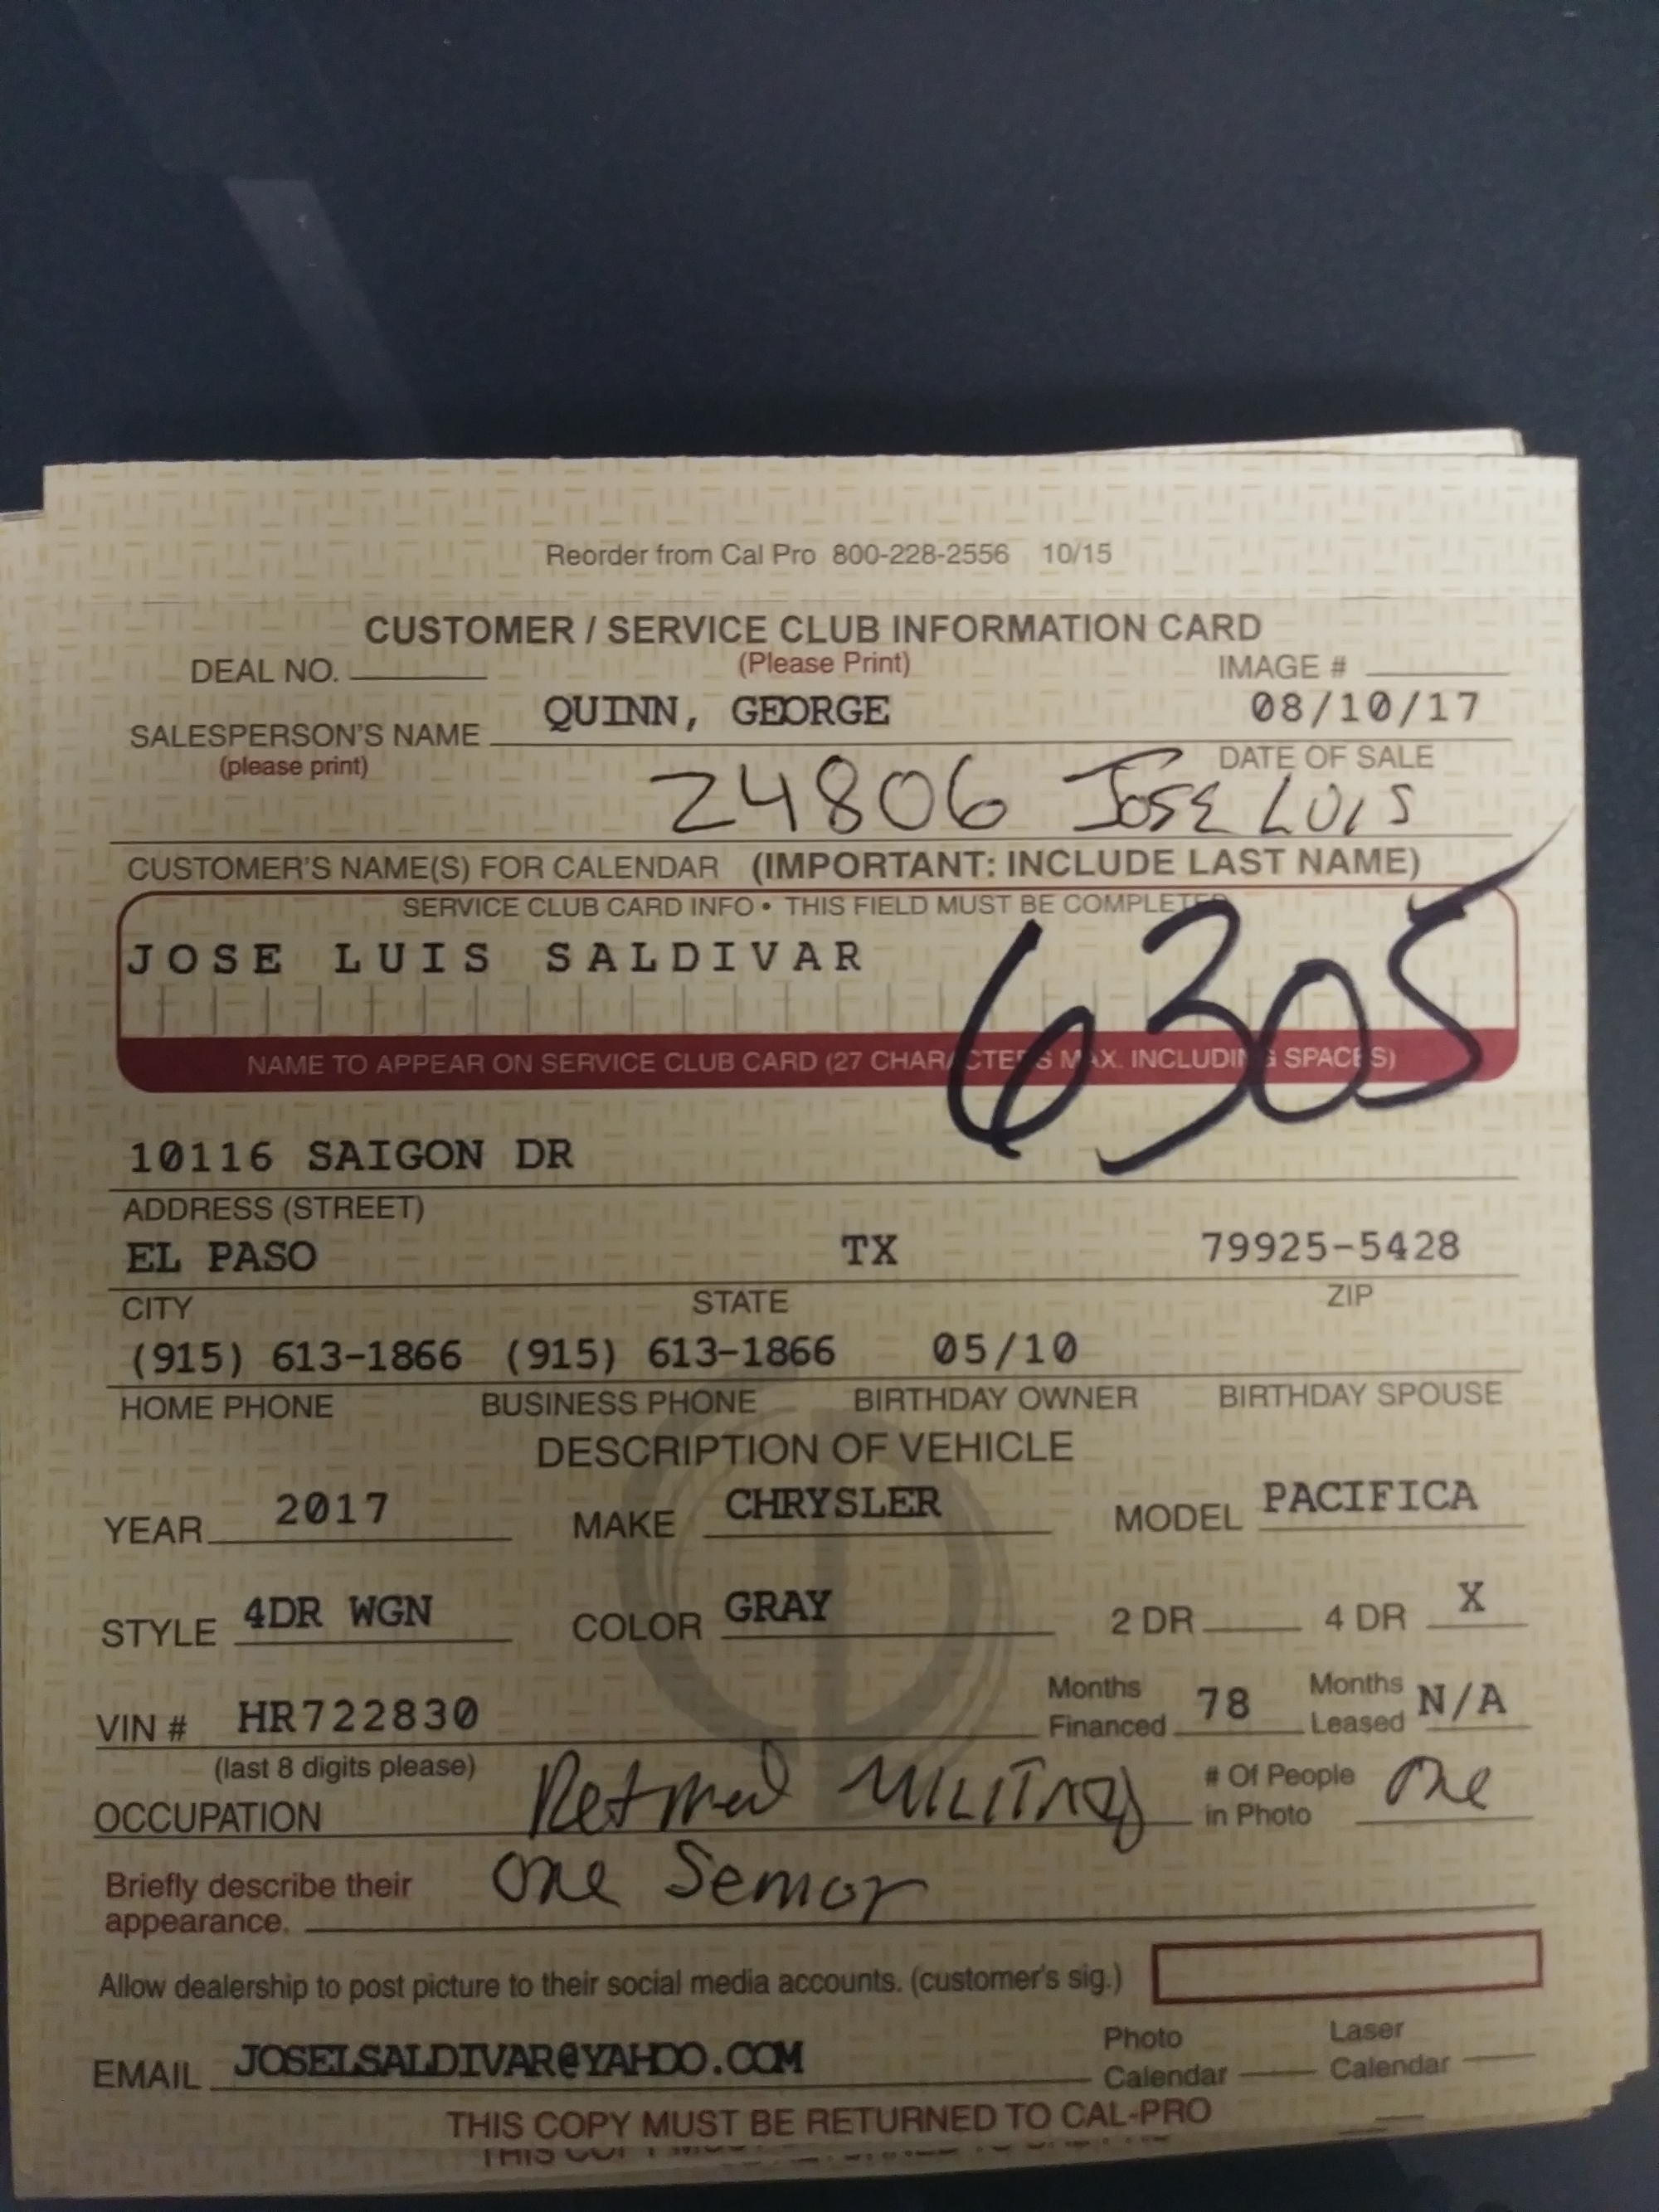 Reorder from Cal Pro 800-228-2556 10/15
CUSTOMER / SERVICE CLUB INFORMATION CARD
DEAL NO. (Please Print) IMAGE #
SALESPERSON'S NAME QUINN, GEORGE 08/10/17
(please print) DATE OF SALE
24806 JOSE LUIS
CUSTOMER'S NAME(S) FOR CALENDAR (IMPORTANT: INCLUDE LAST NAME)
SERVICE CLUB CARD INFO • THIS FIELD MUST BE COMPLETED
JOSE LUIS SALDIVAR 6305
NAME TO APPEAR ON SERVICE CLUB CARD (27 CHARACTERS MAX. INCLUDING SPACES)
10116 SAIGON DR
ADDRESS (STREET)
EL PASO TX 79925-5428
CITY STATE ZIP
(915) 613-1866 (915) 613-1866 05/10
HOME PHONE BUSINESS PHONE BIRTHDAY OWNER BIRTHDAY SPOUSE
DESCRIPTION OF VEHICLE
YEAR 2017 MAKE CHRYSLER MODEL PACIFICA
STYLE 4DR WGN COLOR GRAY 2 DR 4 DR X
VIN # HR722830 Months Financed 78 Months Leased N/A
(last 8 digits please)
OCCUPATION Retired MILITARY # Of People in Photo One
Briefly describe their appearance. One Senior
Allow dealership to post picture to their social media accounts. (customer's sig.)
EMAIL JOSELSALDIVAR@YAHOO.COM Photo Calendar Laser Calendar
THIS COPY MUST BE RETURNED TO CAL-PRO